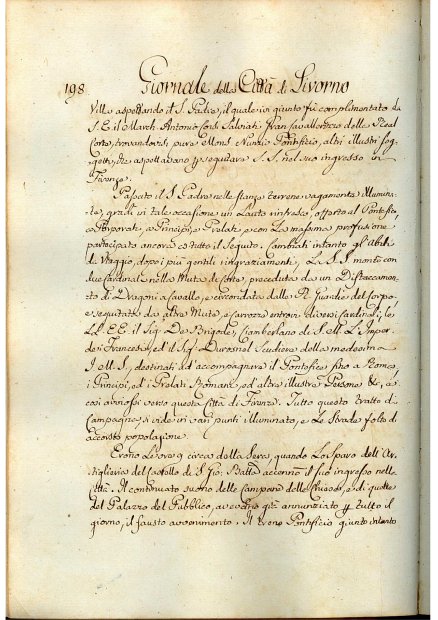 198 Giornale della Città di Livorno
Villa aspettando il S. Padre, il quale ivi giunto fù complimentato da
S. E. il March. Antonio Corsi Salviati Gran Cavallerizzo della Real
Corte, trovandovisi pure Mons. Nunzio Pontificio, altri illustri sog-
getti, che aspettavano p seguitare S. S. nel suo ingresso in
Firenze.
Passato il S. Padre nelle stanze terrene vagamente illumina-
te, gradì in tale occasione un Lauto rinfresco, offerto al Pontefice,
a Porporati, a Principi, e Prelati, e con La massima profusione
partecipato ancora a tutto il Seguito. Cambiati intanto gl'Abiti
da Viaggio, dopo i più gentili ringraziamenti, La S. S. montò con
due Cardinali nella Muta di Corte, preceduta da un Distaccamen-
to di Dragoni a Cavallo, e circondata dalle R. Guardie del Corpo,
e seguitate da altre Mute, e Carrozze entrovi diversi Cardinali, le
LL. EE. il Sig. De Brigode, Ciamberlano di S. M. L'Imper.
de Francesi, ed il Sig. Durosnel Scudiere della medesima
I. e R. S. destinati ad accompagnare il Pontefice fino a Roma,
i Principi, ed i Prelati Romani, ed altre illustri Persone &c, e
così avviossi verso questa Città di Firenze. Tutto questo tratto di
Campagna, si vide in varj punti illuminato, e Le Strade folte di
accorsa popolazione.
Erono Le ore 9 circa della Sera, quando Lo Sparo dell'Ar-
tiglieria del Castello di S. Gio. Batta accennò il suo ingresso nella
Città. Il continuato suono delle Campane delle Chiese, e di quelle
del Palazzo del Pubblico, avevano già annunziato p tutto il
giorno, il fausto avvenimento. Il Treno Pontificio giunto intanto